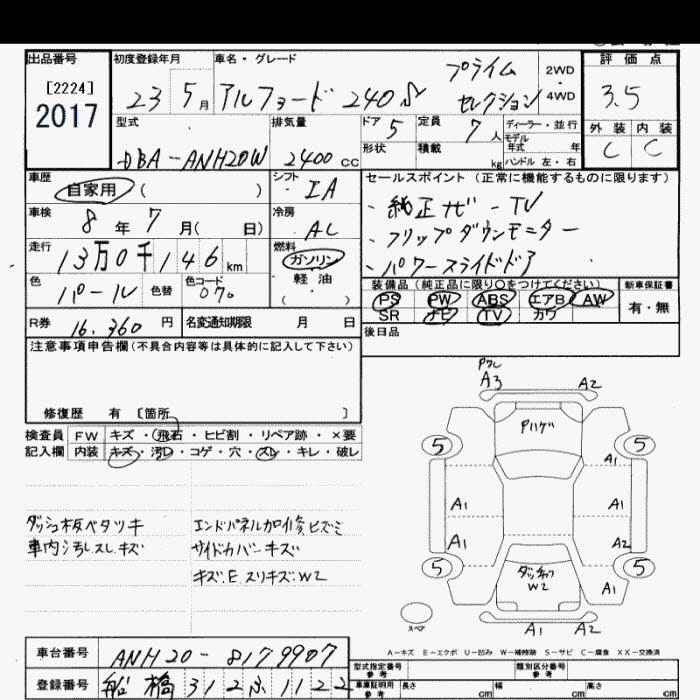 出品番号 初度登録年月 車名・グレード 評価点
[2224]
2017
23 5月 アルファード 240S プライムセレクション 2WD 4WD 3.5
型式 排気量 ドア 5 定員 7人 ディーラー・並行 外装 内装
DBA-ANH20W 2400cc 形状 積載 kg モデル年式 年 ハンドル 左・右 C C
車歴 自家用 ( ) シフト IA セールスポイント (正常に機能するものに限ります)
車検 8年 7月( 日) 冷房 AC ・純正ナビ-TV
・フリップダウンモニター
走行 13万0千146km 燃料 ガソリン 軽油 ( ) ・パワースライドドア
色 パール 色替 色コード 070 装備品 (純正品に限り○をつけてください) 新車保証書
PS PW ABS エアB AW 有・無
SR ナビ TV カワ
R券 16,360円 名変通知期限 月 日 後日品
注意事項申告欄(不具合内容等は具体的に記入して下さい)
修復歴 有 [箇所 ]
検査員 FW キズ・飛石・ヒビ割・リペア跡・×要
記入欄 内装 キズ・汚レ・コゲ・穴・スレ・キレ・破レ
ダッシュ板ベタツキ エンドパネル加修、ヒズミ
車内汚レスレキズ サイドカバーキズ
キズ、E、スリキズ、W2
A3 A2
Pハゲ
5 5
A1
A1 A1
A1 A2
5 5
ダッチャク
W2 A1
スペア A1 A2
A-キズ E-エクボ U-凹み W-補修跡 S-サビ C-腐食 XX-交換済
車台番号 ANH20-8179907
型式指定番号 参考 類別区分番号 参考
登録番号 船橋 312ふ1122
車庫証明用 参考 長さ cm 幅 cm 高さ cm